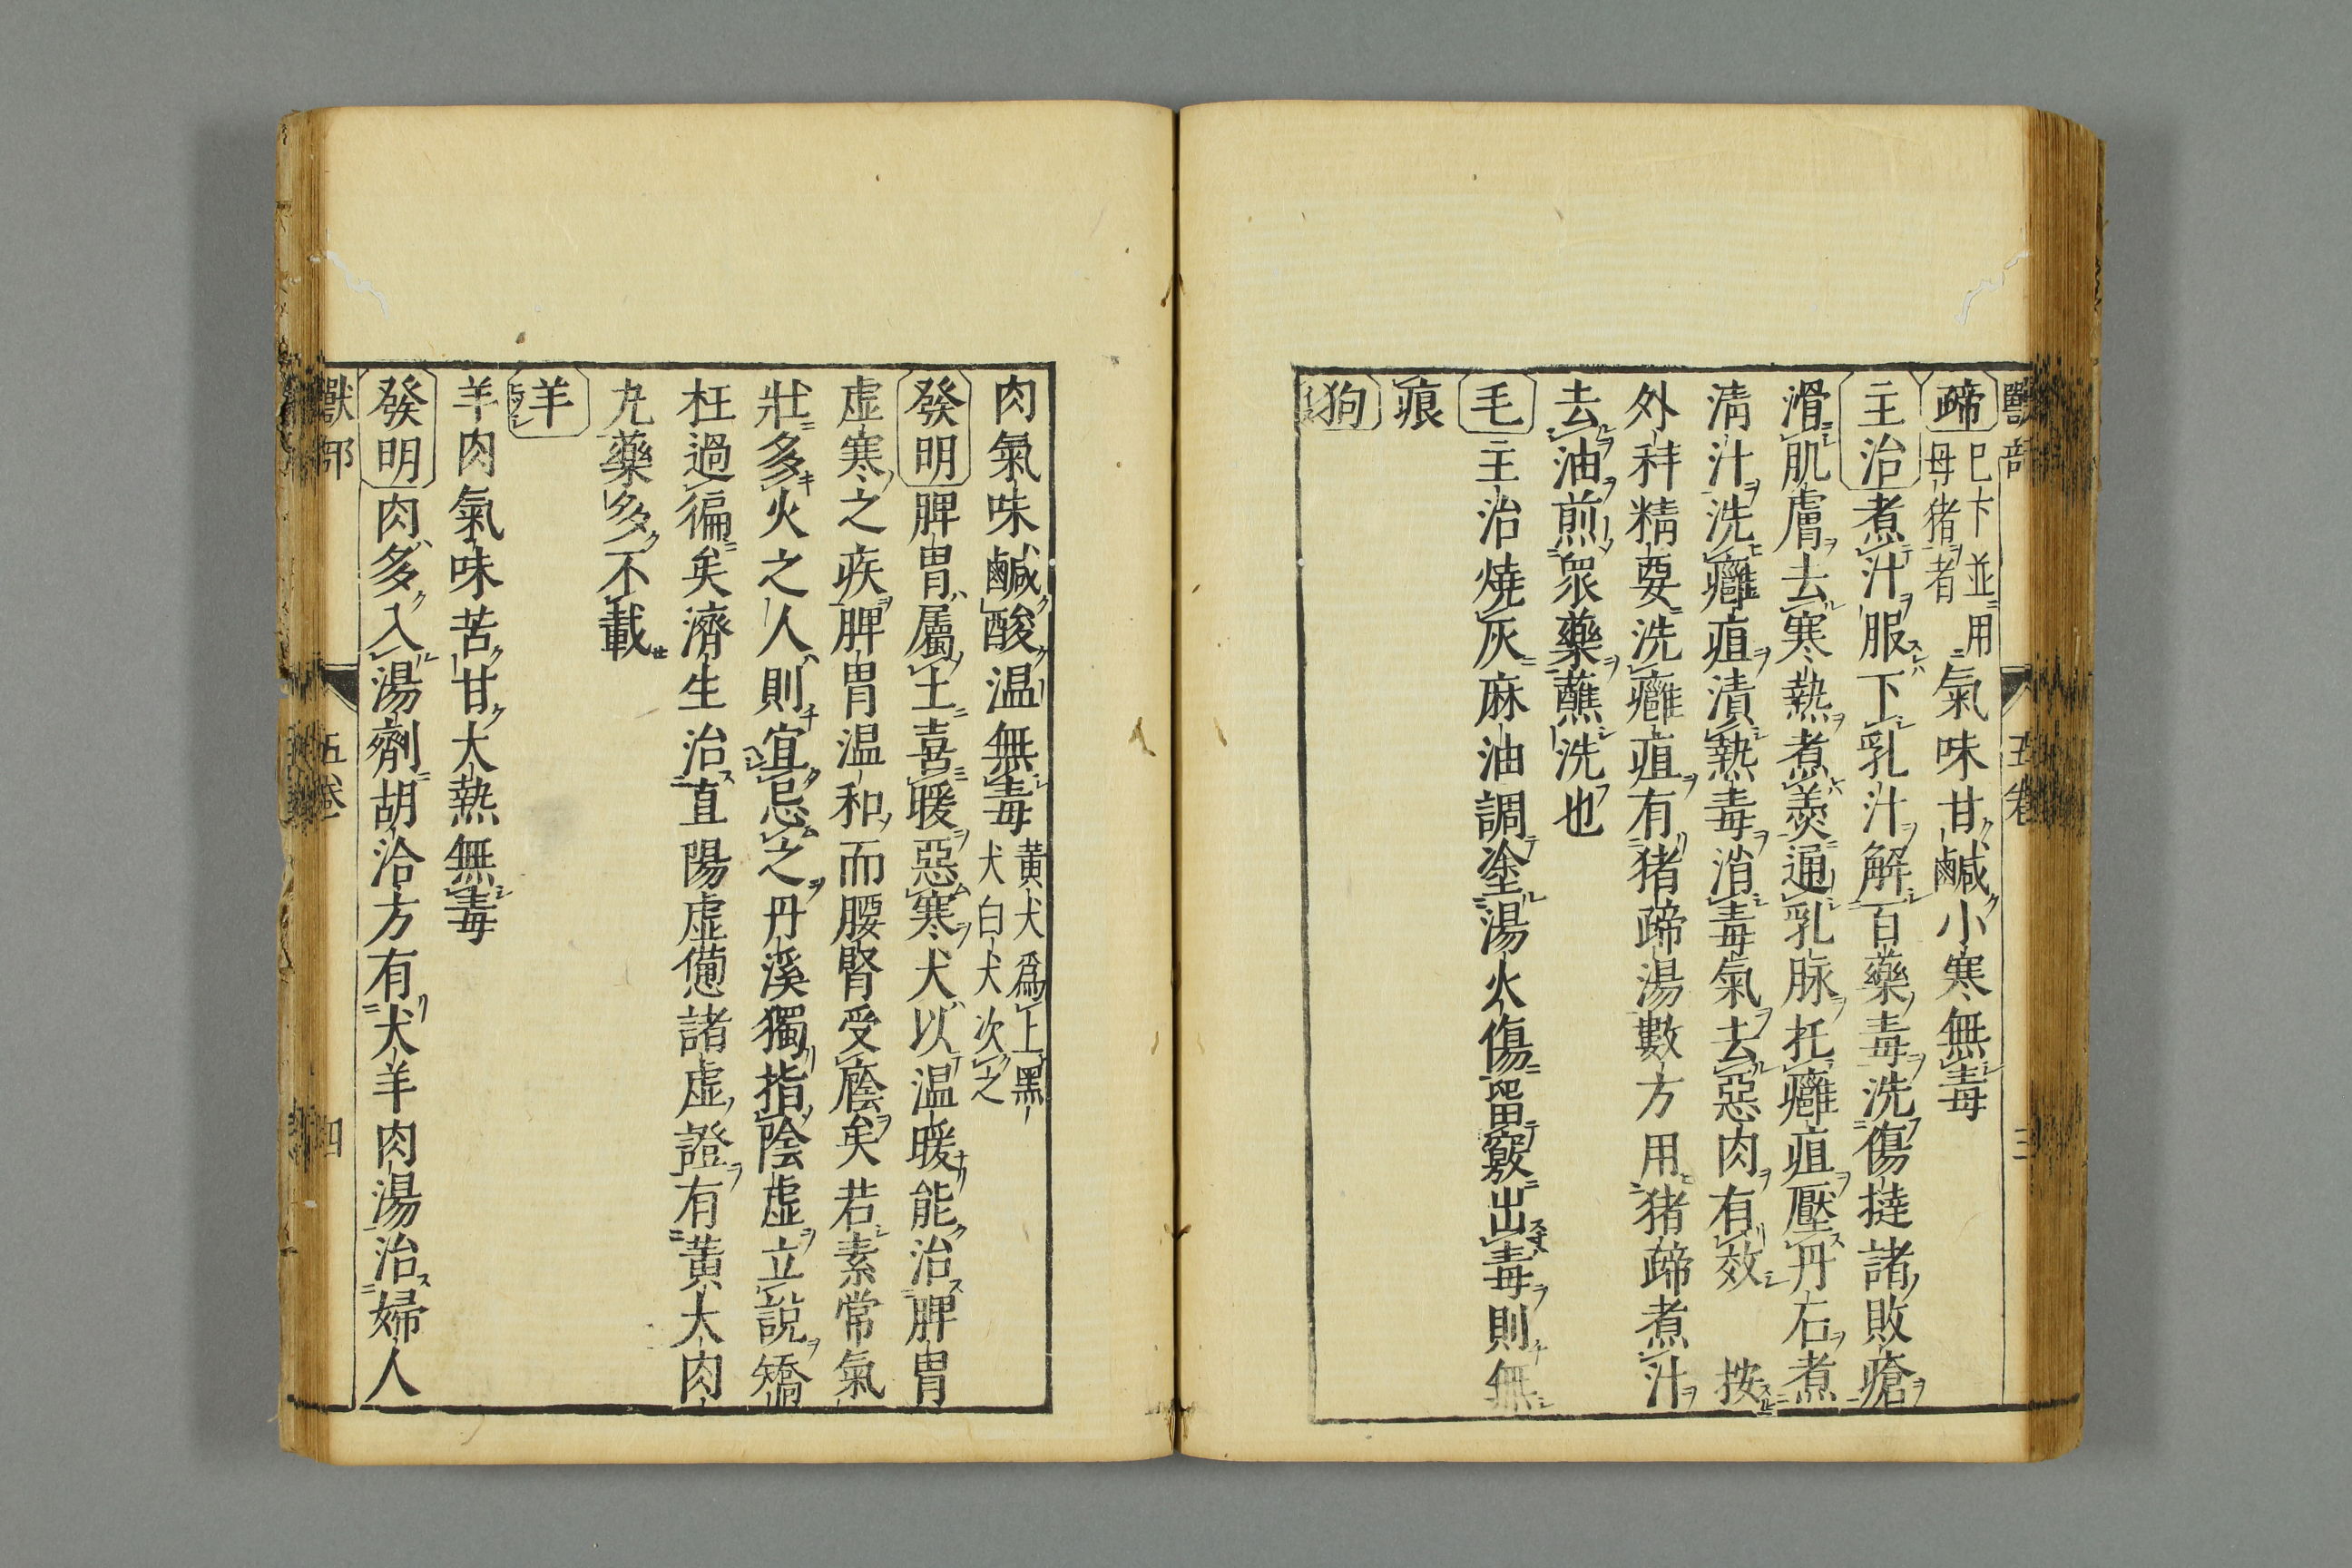 獸部 五卷 三
蹄 巳下並用母猪者 氣味甘鹹小寒無毒
主治 煮汁服下乳汁解百藥毒洗傷撻諸敗瘡
滑肌膚去寒熱煮羹通乳脉托癰疽壓丹石煮
淸汁洗癰疽漬熱毒消毒氣去惡肉有效 按
外科精要洗癰疽有猪蹄湯數方用猪蹄煮汁
去油煎衆藥蘸洗也
毛 主治燒灰麻油調塗湯火傷留竅出毒則無
痕
狗
肉氣味鹹酸温無毒 黄犬爲上黑犬白犬次之
發明 脾胃屬土喜暖惡寒犬以温暖能治脾胃
虚寒之疾脾胃温和而腰腎受廕矣若素常氣
壯多火之人則宜忌之丹溪獨指陰虚立説矯
枉過徧矣濟生治眞陽虚憊諸虚證有黄犬肉
丸藥多不載
羊
羊肉氣味苦甘大熱無毒
發明 肉多入湯劑胡洽方有犬羊肉湯治婦人
獸部 五卷 四